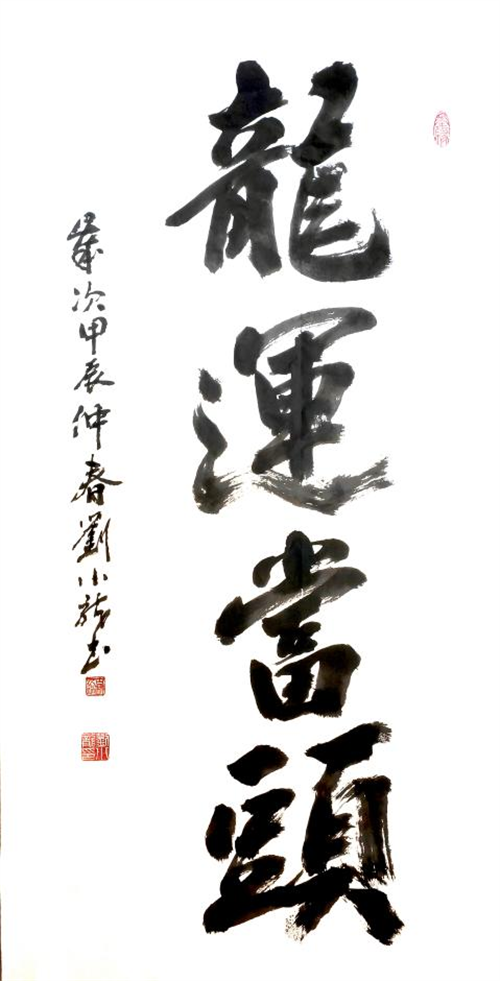 龍運當頭
歲次甲辰仲春劉小龍书